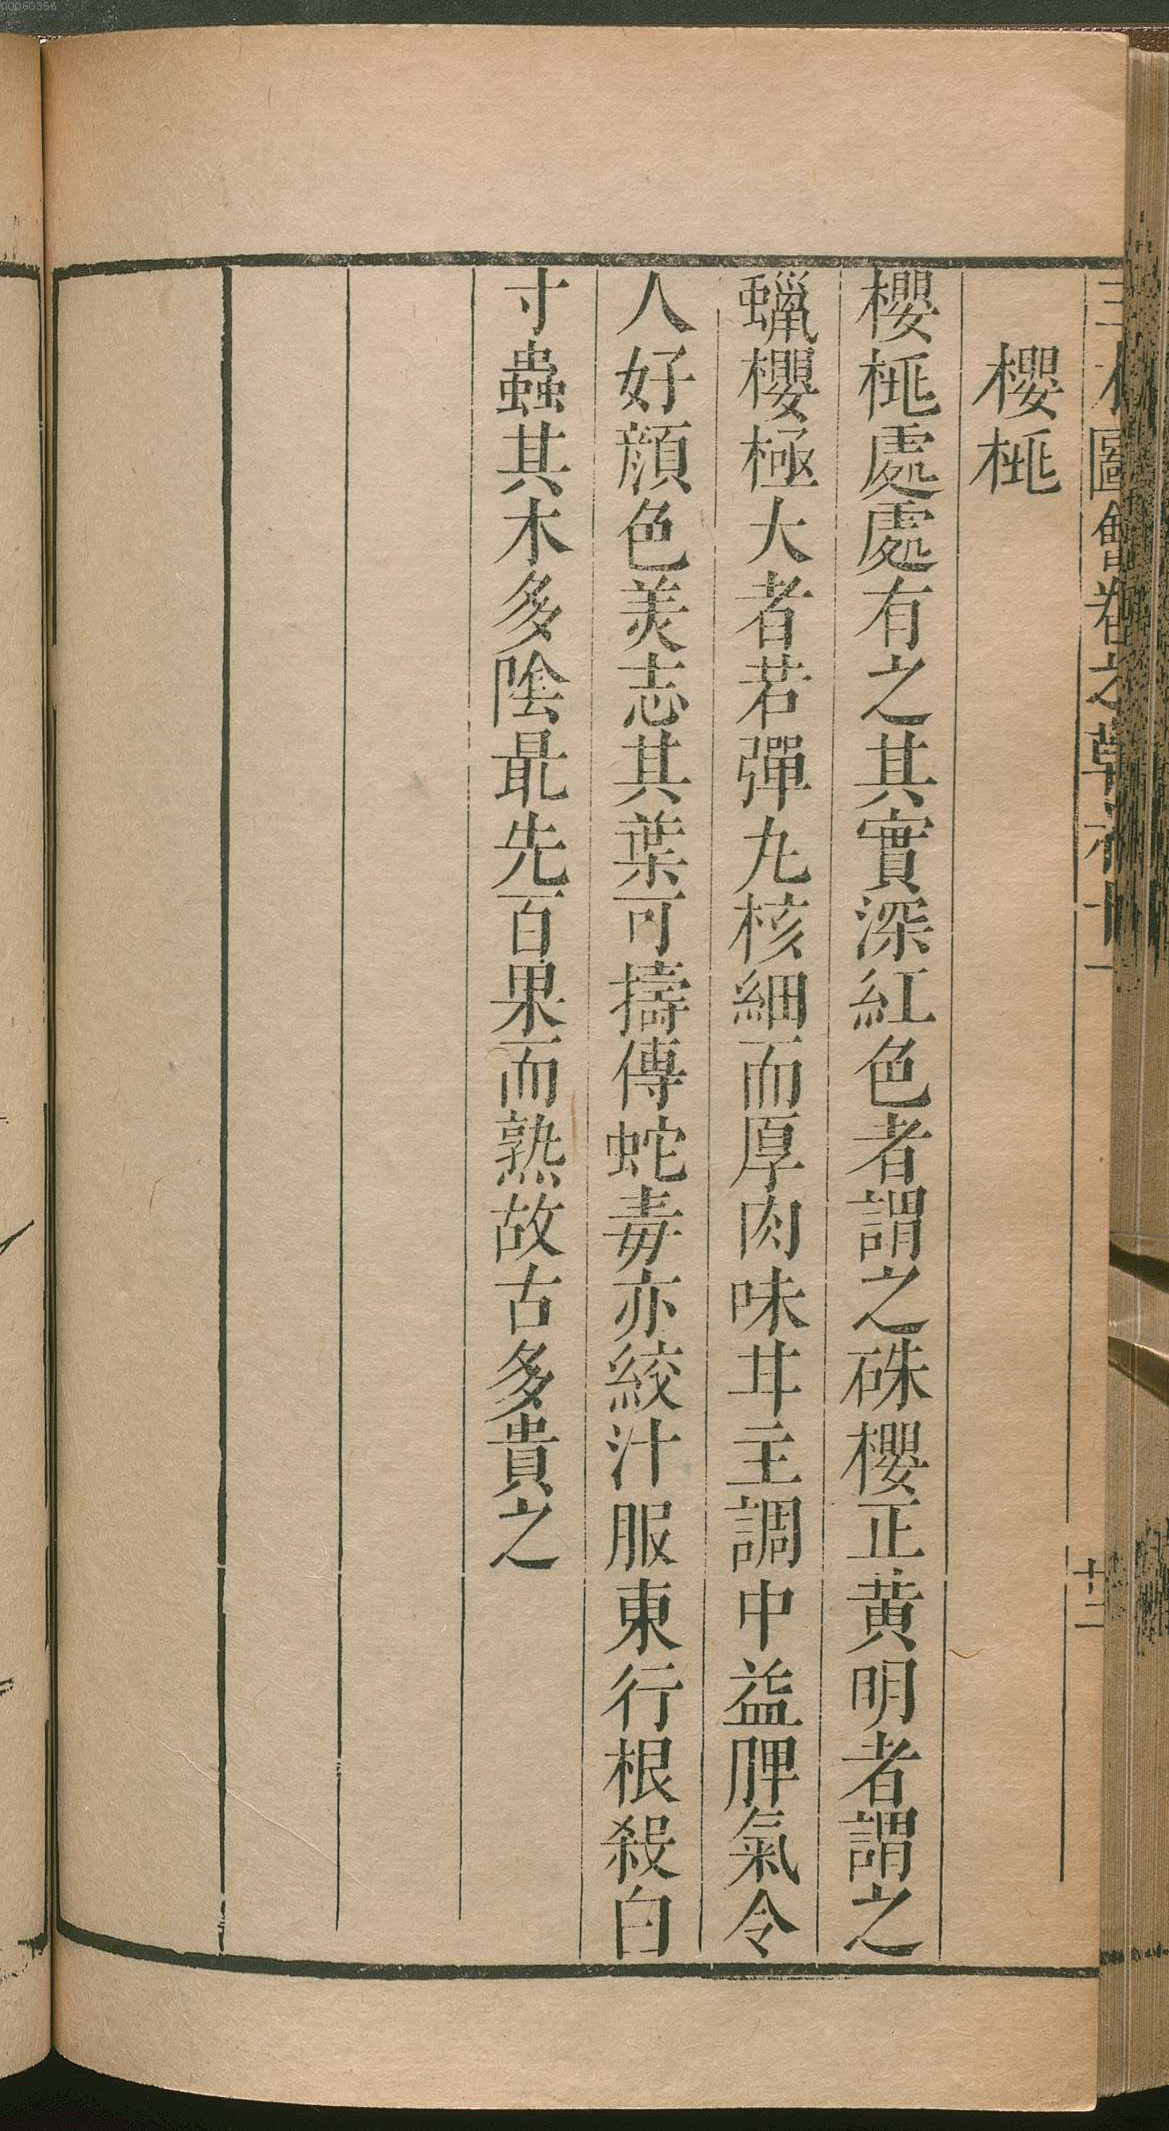 櫻桃
櫻桃處處有之其實深紅色者謂之硃櫻正黄明者謂之
蠟櫻極大者若彈丸核細而厚肉味甘主調中益脾氣令
人好顔色美志其葉可擣傅蛇毒亦絞汁服東行根殺白
寸蟲其木多陰最先百果而熟故古多貴之
廿二
00060356